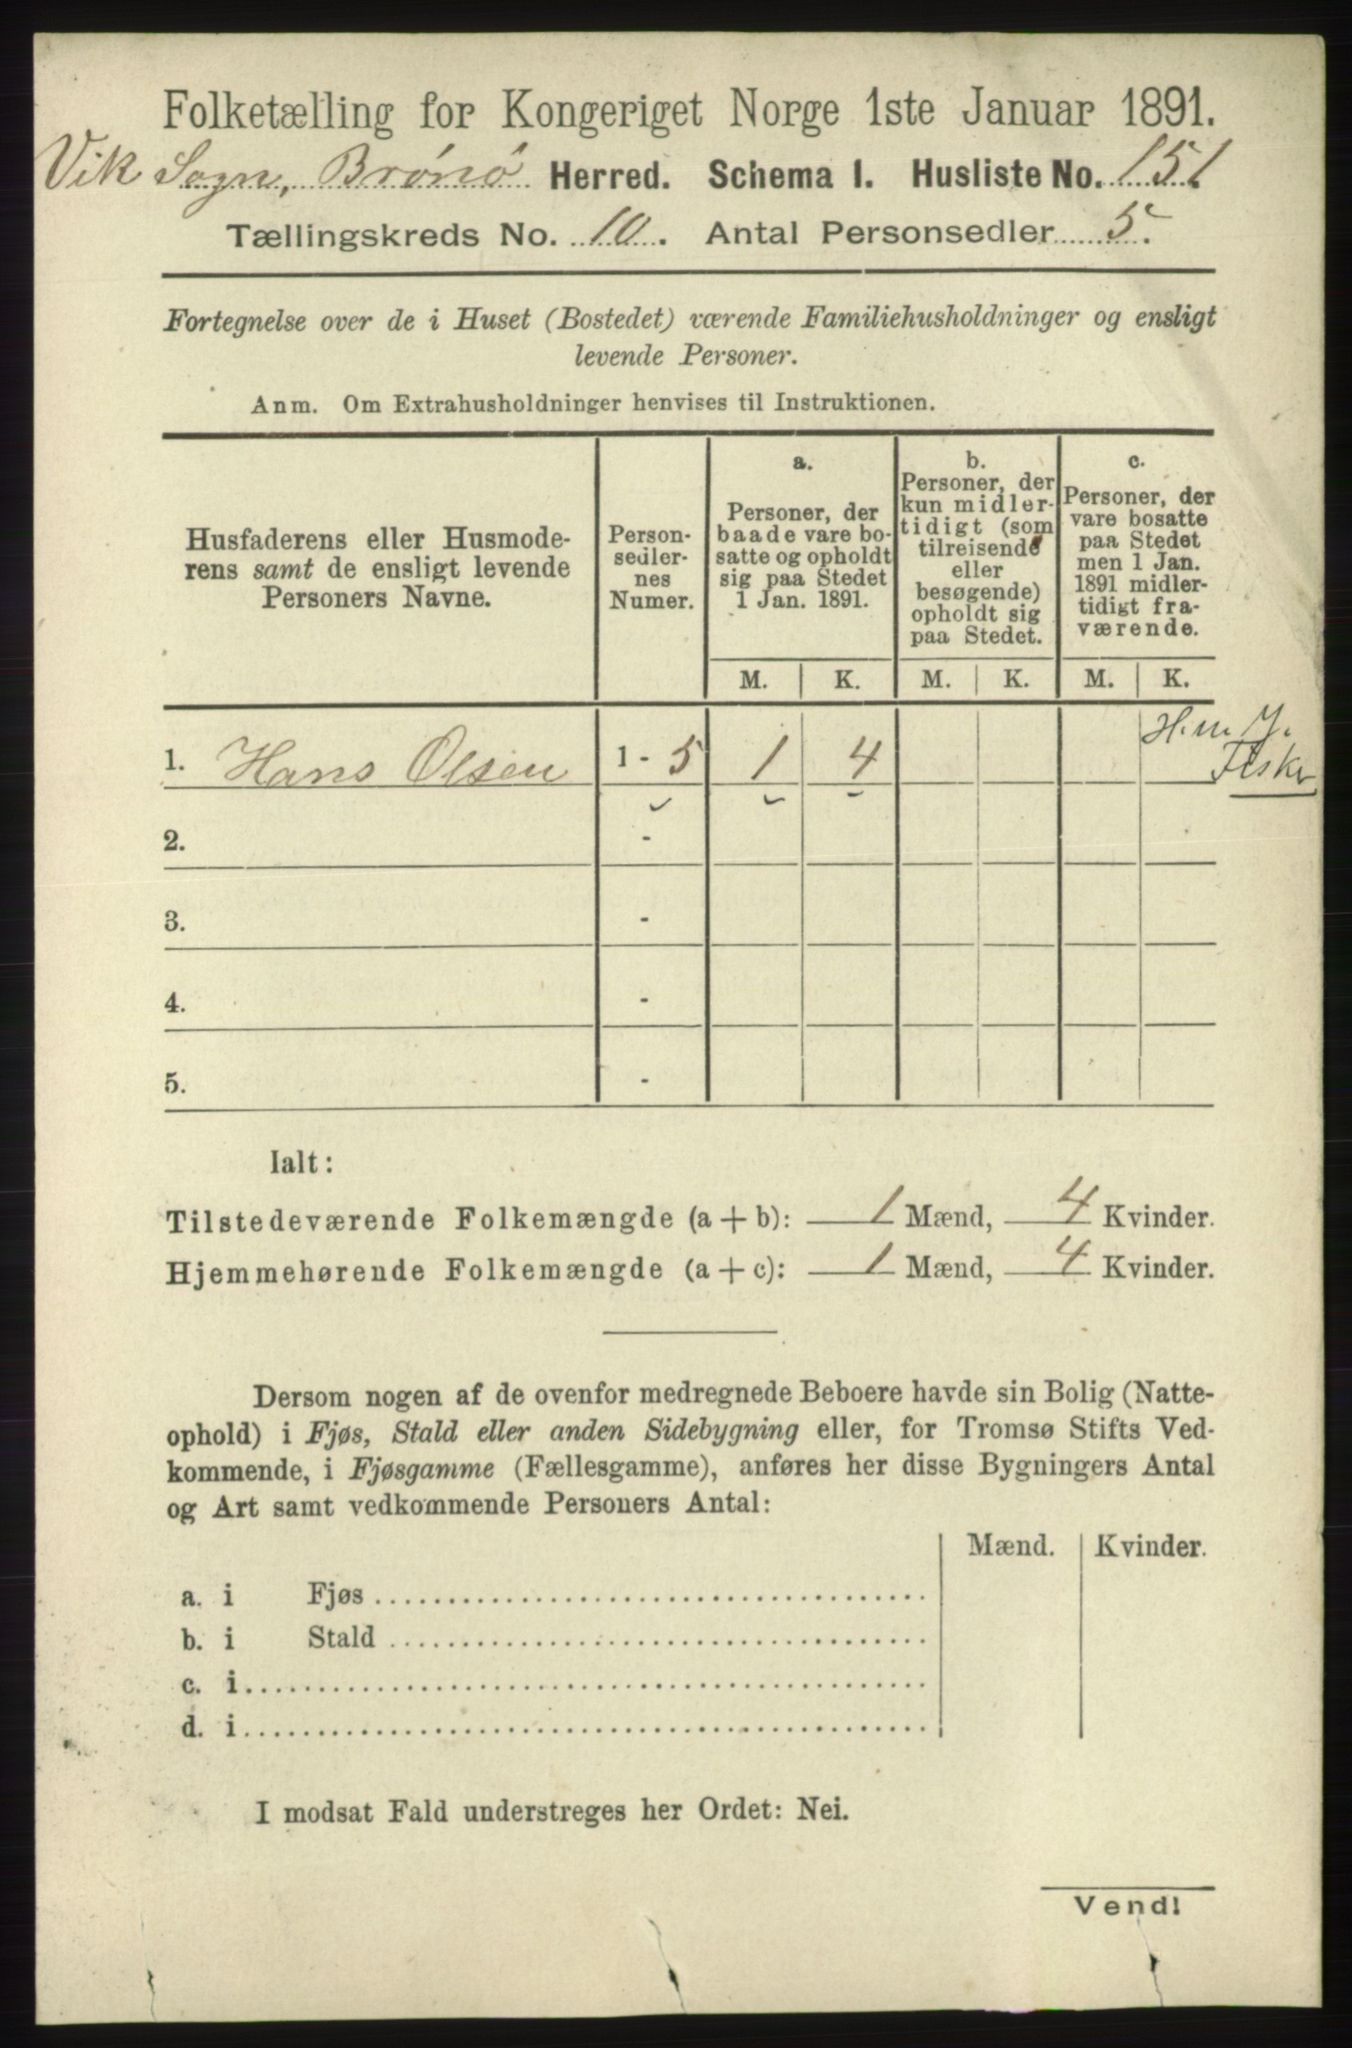 Folketælling for Kongeriget Norge 1ste Januar 1891.
Vik Sogn, Brønø Herred. Schema 1. Husliste No. 151
Tællingskreds No. 10. Antal Personsedler 5.
Fortegnelse over de i Huset (Bostedet) værende Familiehusholdninger og ensligt
levende Personer.
Anm. Om Extrahusholdninger henvises til Instruktionen.
Husfaderens eller Husmode-
rens samt de ensligt levende
Personers Navne.
Person-
sedler-
nes
Numer.
a.
Personer, der
baade vare bo-
satte og opholdt
sig paa Stedet
1 Jan. 1891.
b.
Personer, der
kun midler-
tidigt (som
tilreisende
eller
besøgende)
opholdt sig
paa Stedet.
c.
Personer, der
vare bosatte
paa Stedet
men 1 Jan.
1891 midler-
tidigt fra-
værende.
M. K. M. K. M. K.
1. Hans Olsen 1 - 5 1 4 H. m. J.
Fisker
2. -
3. -
4. -
5. -
Ialt:
Tilstedeværende Folkemængde (a + b): 1 Mænd, 4 Kvinder.
Hjemmehørende Folkemængde (a + c): 1 Mænd, 4 Kvinder.
Dersom nogen af de ovenfor medregnede Beboere havde sin Bolig (Natte-
ophold) i Fjøs, Stald eller anden Sidebygning eller, for Tromsø Stifts Ved-
kommende, i Fjøsgamme (Fællesgamme), anføres her disse Bygningers Antal
og Art samt vedkommende Personers Antal:
Mænd. Kvinder.
a. i Fjøs
b. i Stald
c. i
d. i
I modsat Fald understreges her Ordet: Nei.
Vend!